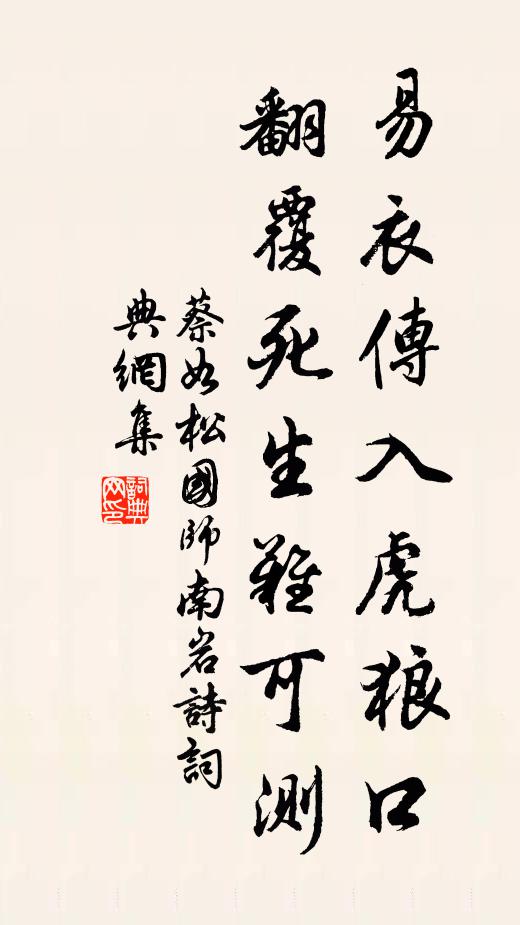 易衣傳入虎狼口
翻覆死生難可測
蔡如松國師南岩詩詞
典網集
詞典
网印